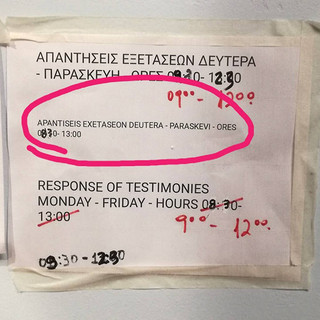 ΑΠΑΝΤΗΣΕΙΣ ΕΞΕΤΑΣΕΩΝ ΔΕΥΤΕΡΑ
- ΠΑΡΑΣΚΕΥΗ - ΟΡΕΣ
09⁰⁰ - 12⁰⁰
APANTISEIS EXETASEON DEUTERA - PARASKEVI - ORES
- 13:00
RESPONSE OF TESTIMONIES
MONDAY - FRIDAY - HOURS 08:30-
13:00
9⁰⁰ - 12⁰⁰